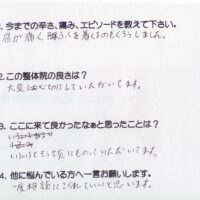 1. 今までの辛さ、痛み、エピソードを教えて下さい。
肩が痛く、服を着るのもくろうしました。
2. この整体院の良さは？
大変親切にしていただいてます。
3. ここに来て良かったなぁと思ったことは？
いろいろと相談にものっていただいてます。
4. 他に悩んでいる方へ一言お願いします。
一度相談にこられていいと思います。